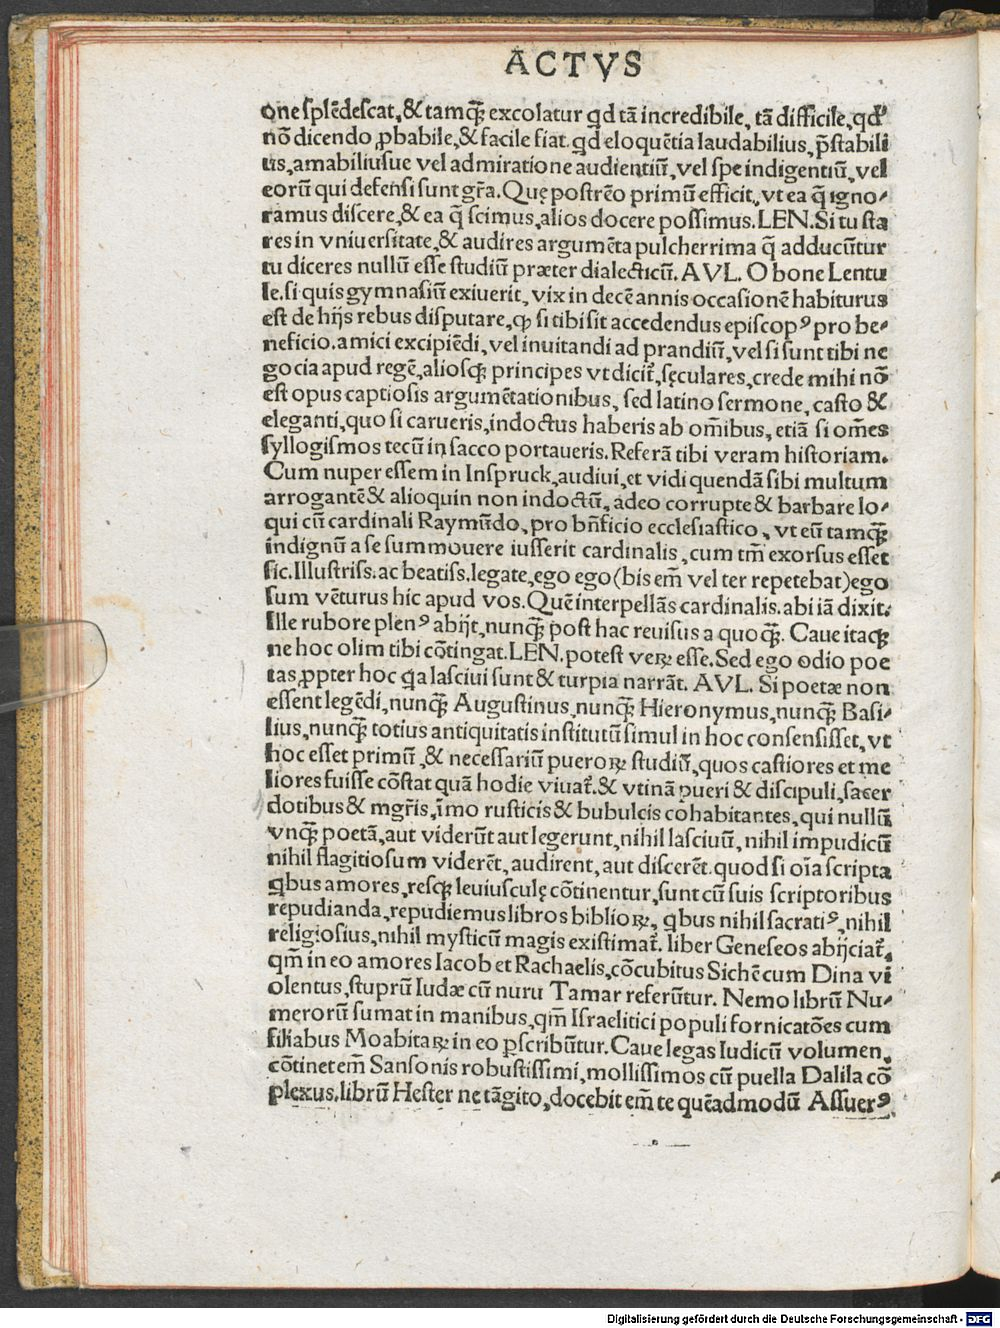 ACTVS
one splēdescat, & tamqꝫ excolatur qd tā incredibile, tā difficile, qd'
nō dicendo ꝓbabile, & facile fiat. qd eloquētia laudabilius, p̄stabili
us, amabiliusue vel admiratione audientiū, vel spe indigentiū, vel
eorū qui defensi sunt gr̄a. Quę postrēo primū efficit, vt ea q̄ igno⸗
ramus discere, & ea q̄ scimus, alios docere possimus. LEN. Si tu sta
res in vniuersitate, & audires argumēta pulcherrima q̄ adducūtur
tu diceres nullū esse studiū præter dialecticū. AVL. O bone Lentu
le. si quis gymnasiū exiuerit, vix in decē annis occasionē habiturus
est de hijs rebus disputare, ꝙ si tibi sit accedendus episcopꝰ pro be⸗
neficio. amici excipiēdi, vel inuitandi ad prandiū, vel si sunt tibi ne
gocia apud regē, aliosqꝫ principes vt dicit̄, sęculares, crede mihi nō
est opus captiosis argumētationibus, sed latino sermone, casto &
eleganti, quo si carueris, indoctus haberis ab om̄ibus, etiā si om̄es
syllogismos tecū in sacco portaueris. Referā tibi veram historiam.
Cum nuper essem in Inspruck, audiui, et vidi quendā sibi multum
arrogantē & alioquin non indoctū, adeo corrupte & barbare lo⸗
qui cū cardinali Raymūdo, pro bn̄ficio ecclesiastico, vt eū tamqꝫ
indignū a se summouere iusserit cardinalis, cum tm̄ exorsus esset
sic. Illustriss. ac beatiss. legate, ego ego (bis em̄ vel ter repetebat) ego
sum vēturus hic apud vos. Quē interpellās cardinalis. abi iā dixit.
Ille rubore plenꝰ abijt, nunqꝫ post hac reuisus a quoqꝫ. Caue itaqꝫ
ne hoc olim tibi cōtingat. LEN. potest veꝝ esse. Sed ego odio poe
tas, ꝓpter hoc qa lasciui sunt & turpia narrāt. AVL. Si poetæ non
essent legēdi, nunqꝫ Augustinus, nunqꝫ Hieronymus, nunqꝫ Basi⸗
lius, nunqꝫ totius antiquitatis institutū simul in hoc consensisset, vt
hoc esset primū, & necessariū pueroꝝ studiū, quos castiores et me
liores fuisse cōstat quā hodie viuat̄. & vtinā pueri & discipuli, sacer
dotibus & mgr̄is, īmo rusticis & bubulcis cohabitantes, qui nullū
vnqꝫ poetā, aut viderūt aut legerunt, nihil lasciuū, nihil impudicū
nihil flagitiosum viderēt, audirent, aut discerēt. quod si oīa scripta
qbus amores, resqꝫ leuiusculę cōtinentur, sunt cū suis scriptoribus
repudianda, repudiemus libros biblioꝝ, qbus nihil sacratiꝰ, nihil
religiosius, nihil mysticū magis existimat̄. liber Geneseos abijciat̄,
qm̄ in eo amores Iacob et Rachaelis, cōcubitus Sichē cum Dina vi
olentus, stuprū Iudæ cū nuru Tamar referūtur. Nemo librū Nu⸗
merorū sumat in manibus, qm̄ Israelitici populi fornicatōes cum
filiabus Moabitaꝝ in eo ꝑscribūtur. Caue legas Iudicū volumen,
cōtinet em̄ Sansonis robustissimi, mollissimos cū puella Dalila cō
plexus. librū Hester ne tāgito, docebit em̄ te quēadmodū Assuerꝰ
Digitalisierung gefördert durch die Deutsche Forschungsgemeinschaft - DFG